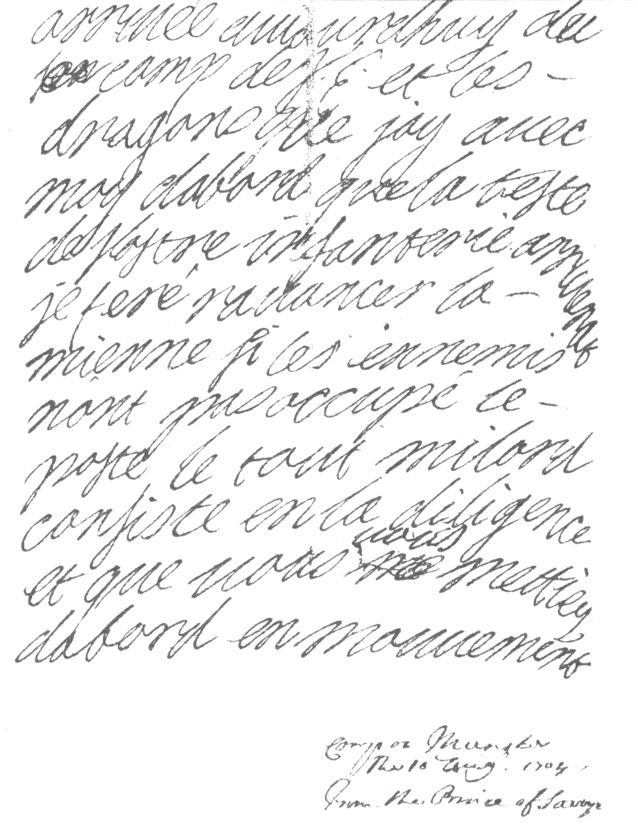 arriuée aujourdhuy du
camp de et les -
dragons que jay auec
moy dabord que la teste
de vostre infanterie arriuerat
je feré radvancer la -
mienne si les énnemis
nónt pas occupé le -
poste le tout milord
consiste en la diligence
et que uous uous mettiéz
dabord en mouuement
Camp at Munster
the 10 Aug. 1704.
From the Prince of Savoye